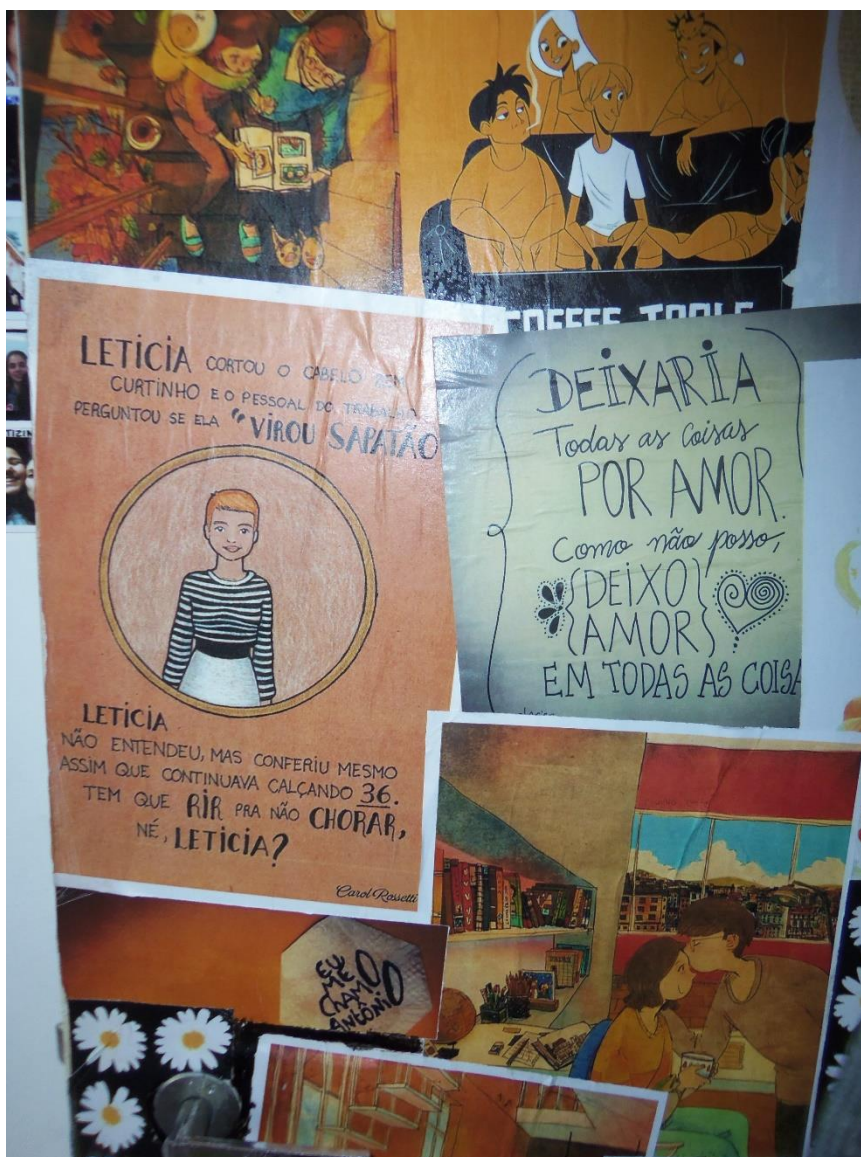 COFFEE TABLE
LETICIA CORTOU O CABELO BEM
CURTINHO E O PESSOAL DO TRABALHO
PERGUNTOU SE ELA "VIROU SAPATÃO
LETICIA
NÃO ENTENDEU, MAS CONFERIU MESMO
ASSIM QUE CONTINUAVA CALÇANDO 36.
TEM QUE RIR PRA NÃO CHORAR,
NÉ, LETICIA?
Carol Rossetti
DEIXARIA
Todas as Coisas
POR AMOR.
Como não posso,
{DEIXO}
{AMOR}
EM TODAS AS COISA
EU
ME
CHAMO
ANTÔNIO